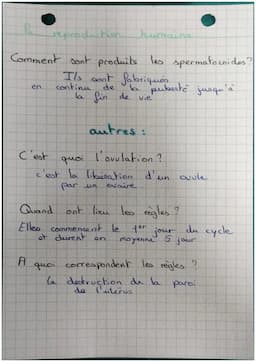 La reproduction humaine
Comment sont produits les spermatozoïdes ?
Ils sont fabriqués
en continu de la puberté jusqu'à
la fin de vie
autres :
C'est quoi l'ovulation ?
c'est la libération d'un ovule
par un ovaire
Quand ont lieu les règles ?
Elles commencent le 1er jour du cycle
et durent en moyenne 5 jour
A quoi correspondent les règles ?
la destruction de la paroi
de l'utérus